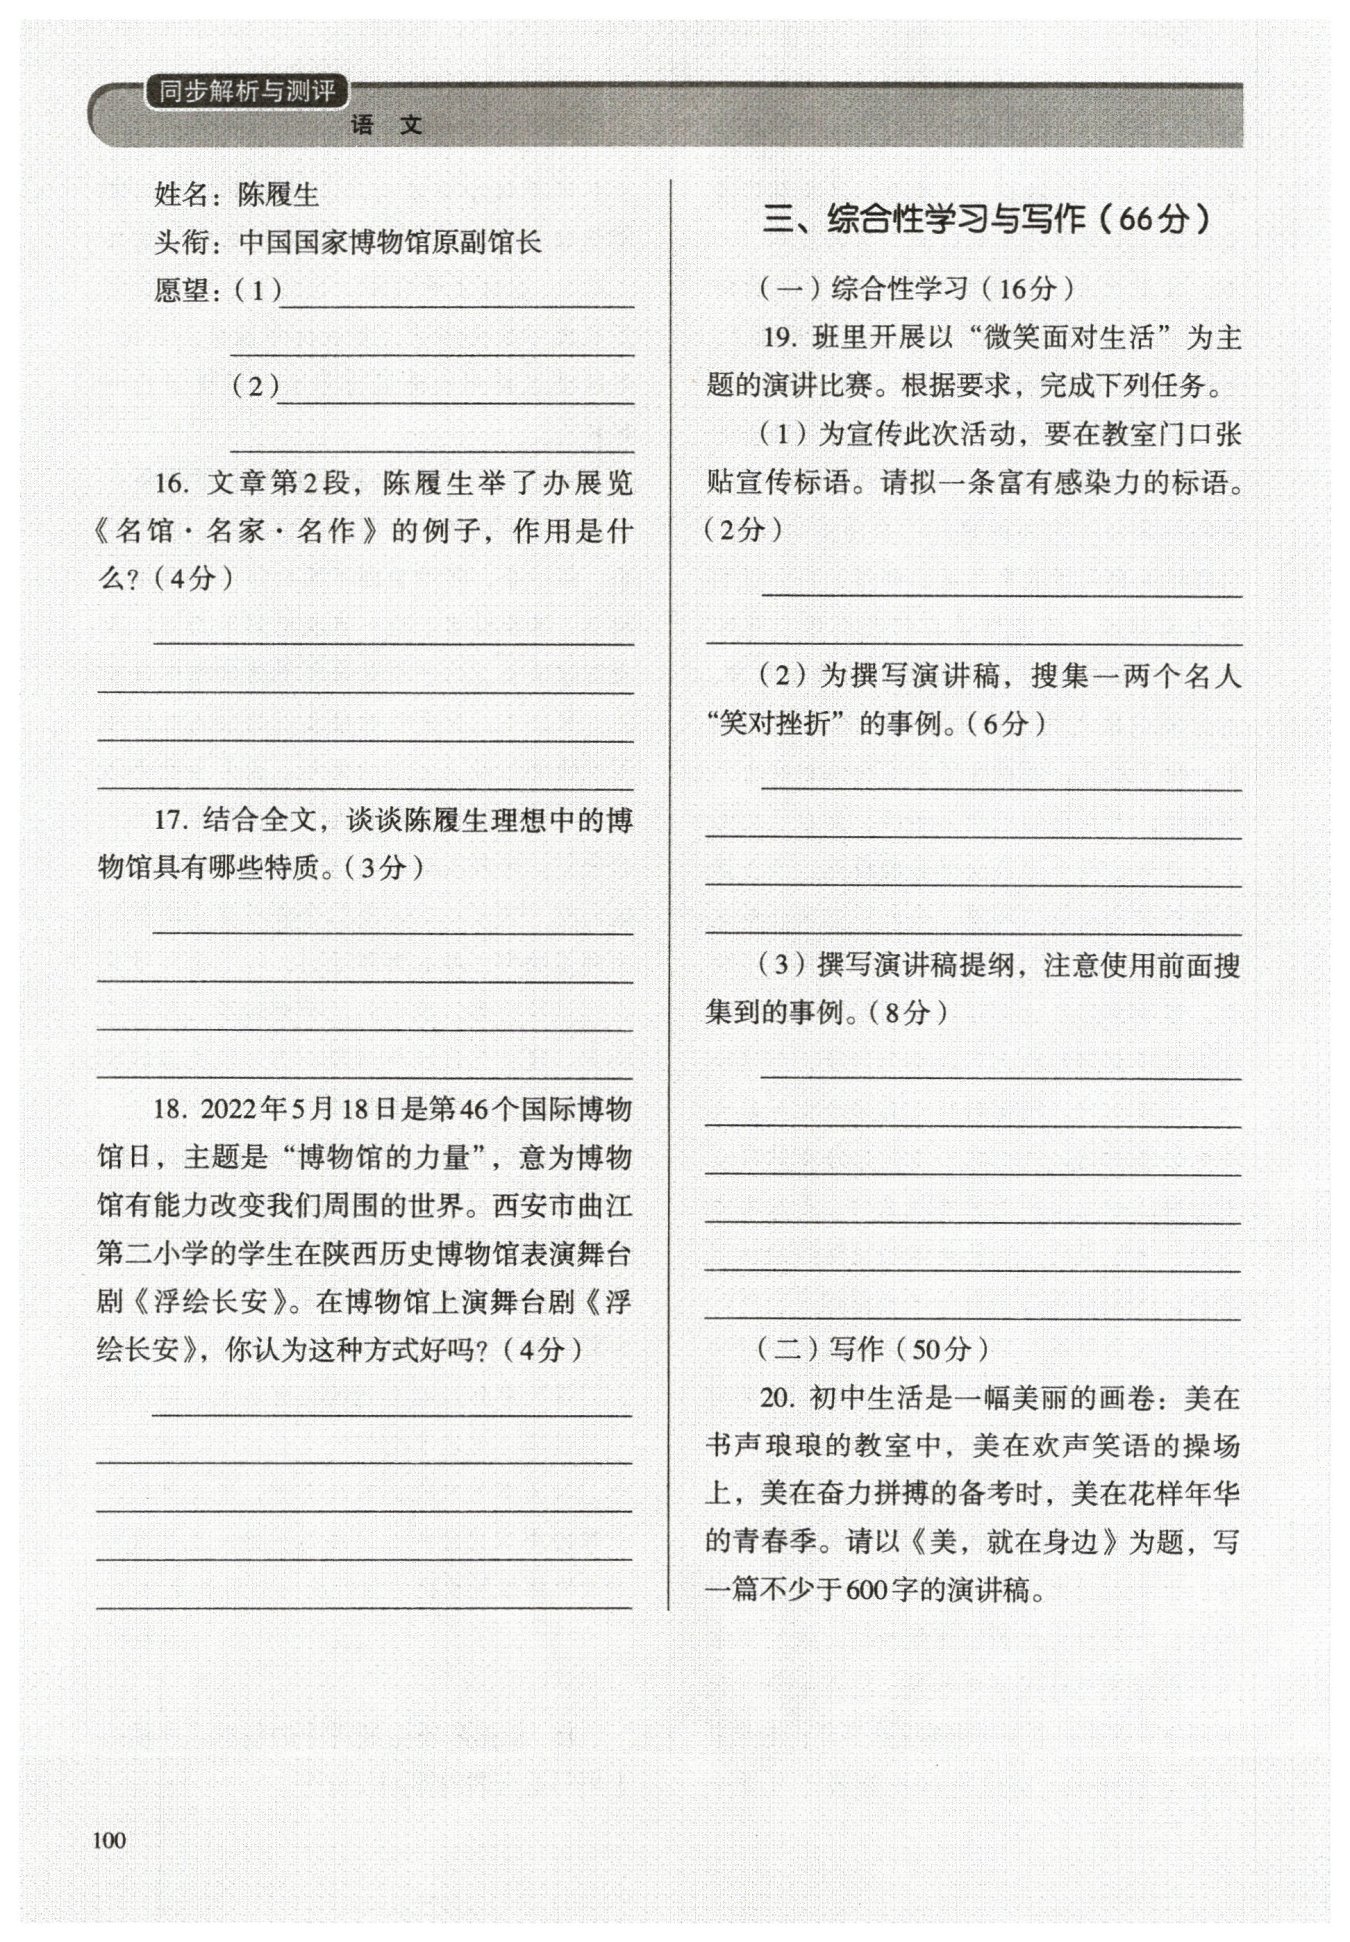 同步解析与测评
语 文
姓名：陈履生
头衔：中国国家博物馆原副馆长
愿望：（1）
（2）
16. 文章第2段，陈履生举了办展览
《名馆·名家·名作》的例子，作用是什
么？（4分）
17. 结合全文，谈谈陈履生理想中的博
物馆具有哪些特质。（3分）
18. 2022年5月18日是第46个国际博物
馆日，主题是“博物馆的力量”，意为博物
馆有能力改变我们周围的世界。西安市曲江
第二小学的学生在陕西历史博物馆表演舞台
剧《浮绘长安》。在博物馆上演舞台剧《浮
绘长安》，你认为这种方式好吗？（4分）
三、综合性学习与写作（66分）
（一）综合性学习（16分）
19. 班里开展以“微笑面对生活”为主
题的演讲比赛。根据要求，完成下列任务。
（1）为宣传此次活动，要在教室门口张
贴宣传标语。请拟一条富有感染力的标语。
（2分）
（2）为撰写演讲稿，搜集一两个名人
“笑对挫折”的事例。（6分）
（3）撰写演讲稿提纲，注意使用前面搜
集到的事例。（8分）
（二）写作（50分）
20. 初中生活是一幅美丽的画卷：美在
书声琅琅的教室中，美在欢声笑语的操场
上，美在奋力拼搏的备考时，美在花样年华
的青春季。请以《美，就在身边》为题，写
一篇不少于600字的演讲稿。
100